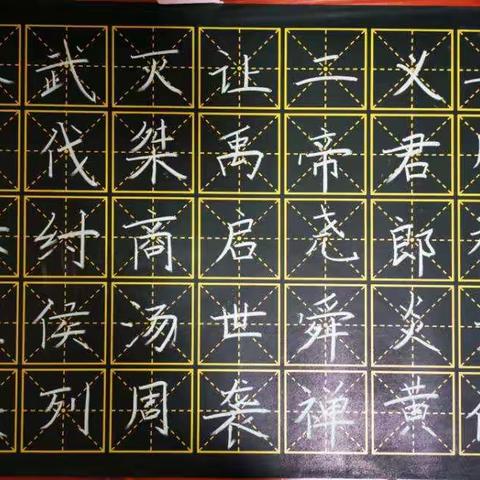 义君郎炎黄
二帝尧舜禅
让禹启世袭
灭桀商汤周
武伐纣侯列